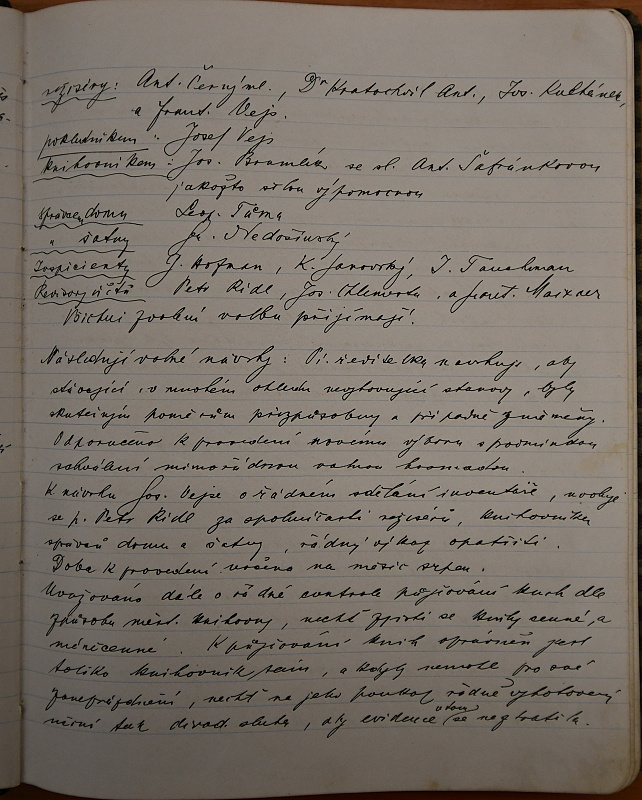 režiséry: Ant. Černý ml., Dr Kratochvil Ant., Jos. Kultánek,
a Frant. Vejs.
pokladníkem: Josef Vejs
knihovníkem: Jos. Bramlík se sl. Ant. Šafránkovou
jakožto silou výpomocnou
správcem domu Leop. Tůma
" šatny
Inspicienty J. Hofman, K. Janovský, J.
Revisory účtů Petr Rídl, Jos. a Frant. Maixner
Všichni zvolení volbu přijímají.
Následují volné návrhy: Pí. ředitelka navrhuje, aby
stávající v mnohém ohledu nevyhovující stanovy, byly
skutečným poměrům přizpůsobeny a případně změněny.
Odporučeno k provedení novému výboru s podmínkou
schválení mimořádnou valnou hromadou.
K návrhu Jos. Vejse o řádném sdělání inventáře,
se p. Petr Rídl za spoluúčasti režisérů, knihovníka
správců domu a šatny, řádný výkaz opatřiti.
Doba k provedení určena na měsíc srpen.
Uvažováno dále o řádné kontrole půjčování knih dle
způsobu měst. knihovny, nechť zjistí se knihy cenné, a
méněcenné. K půjčování knih oprávněn jest
toliko knihovník sám, a kdyby nemohl pro své
zaneprázdnění, nechť na jeho poukaz řádně vyhotovený
učiní tak divad. sluha, aby evidence v tom se neztratila.